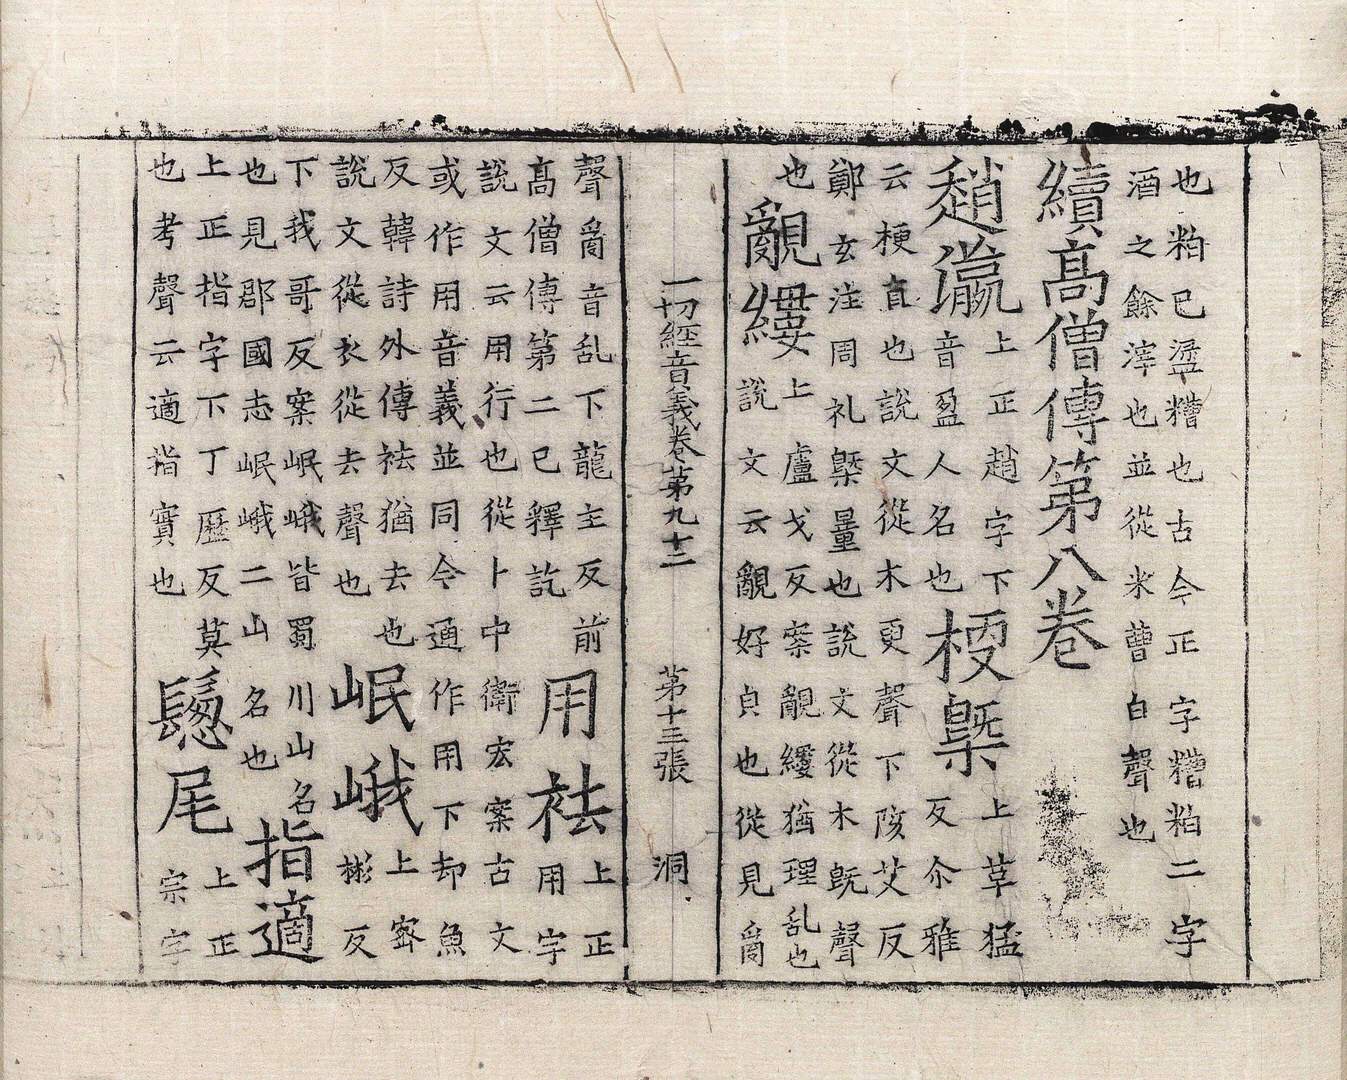 也粕巳盪糟也古今正字糟粕二字
酒之餘滓也並從米曹白聲也
續高僧傳第八卷
趙瀛
上正趙字下
音盈人名也
梗槩
上草猛
反尒雅
云梗直也說文從木更聲下陔艾反
鄭玄注周礼槩量也說文從木旣聲
也
覶縷
上盧戈反案覶縷猶理乱也
說文云覶好皃也從見𤔔
一切經音義卷第九十二 第十三張 洞
聲𤔔音乱下龍主反前
高僧傳第二已釋訖
用袪
上正
用字
說文云用行也從卜中衛宏案古文
或作用音義並同今通作用下却魚
反韓詩外傳袪猶去也
說文從衣從去聲也
岷峨
上密
彬反
下我哥反案岷峨皆蜀川山名
也見郡國志岷峨二山名也
指適
上正指字下丁歷反莫
也考聲云適指實也
尾
上正
宗字